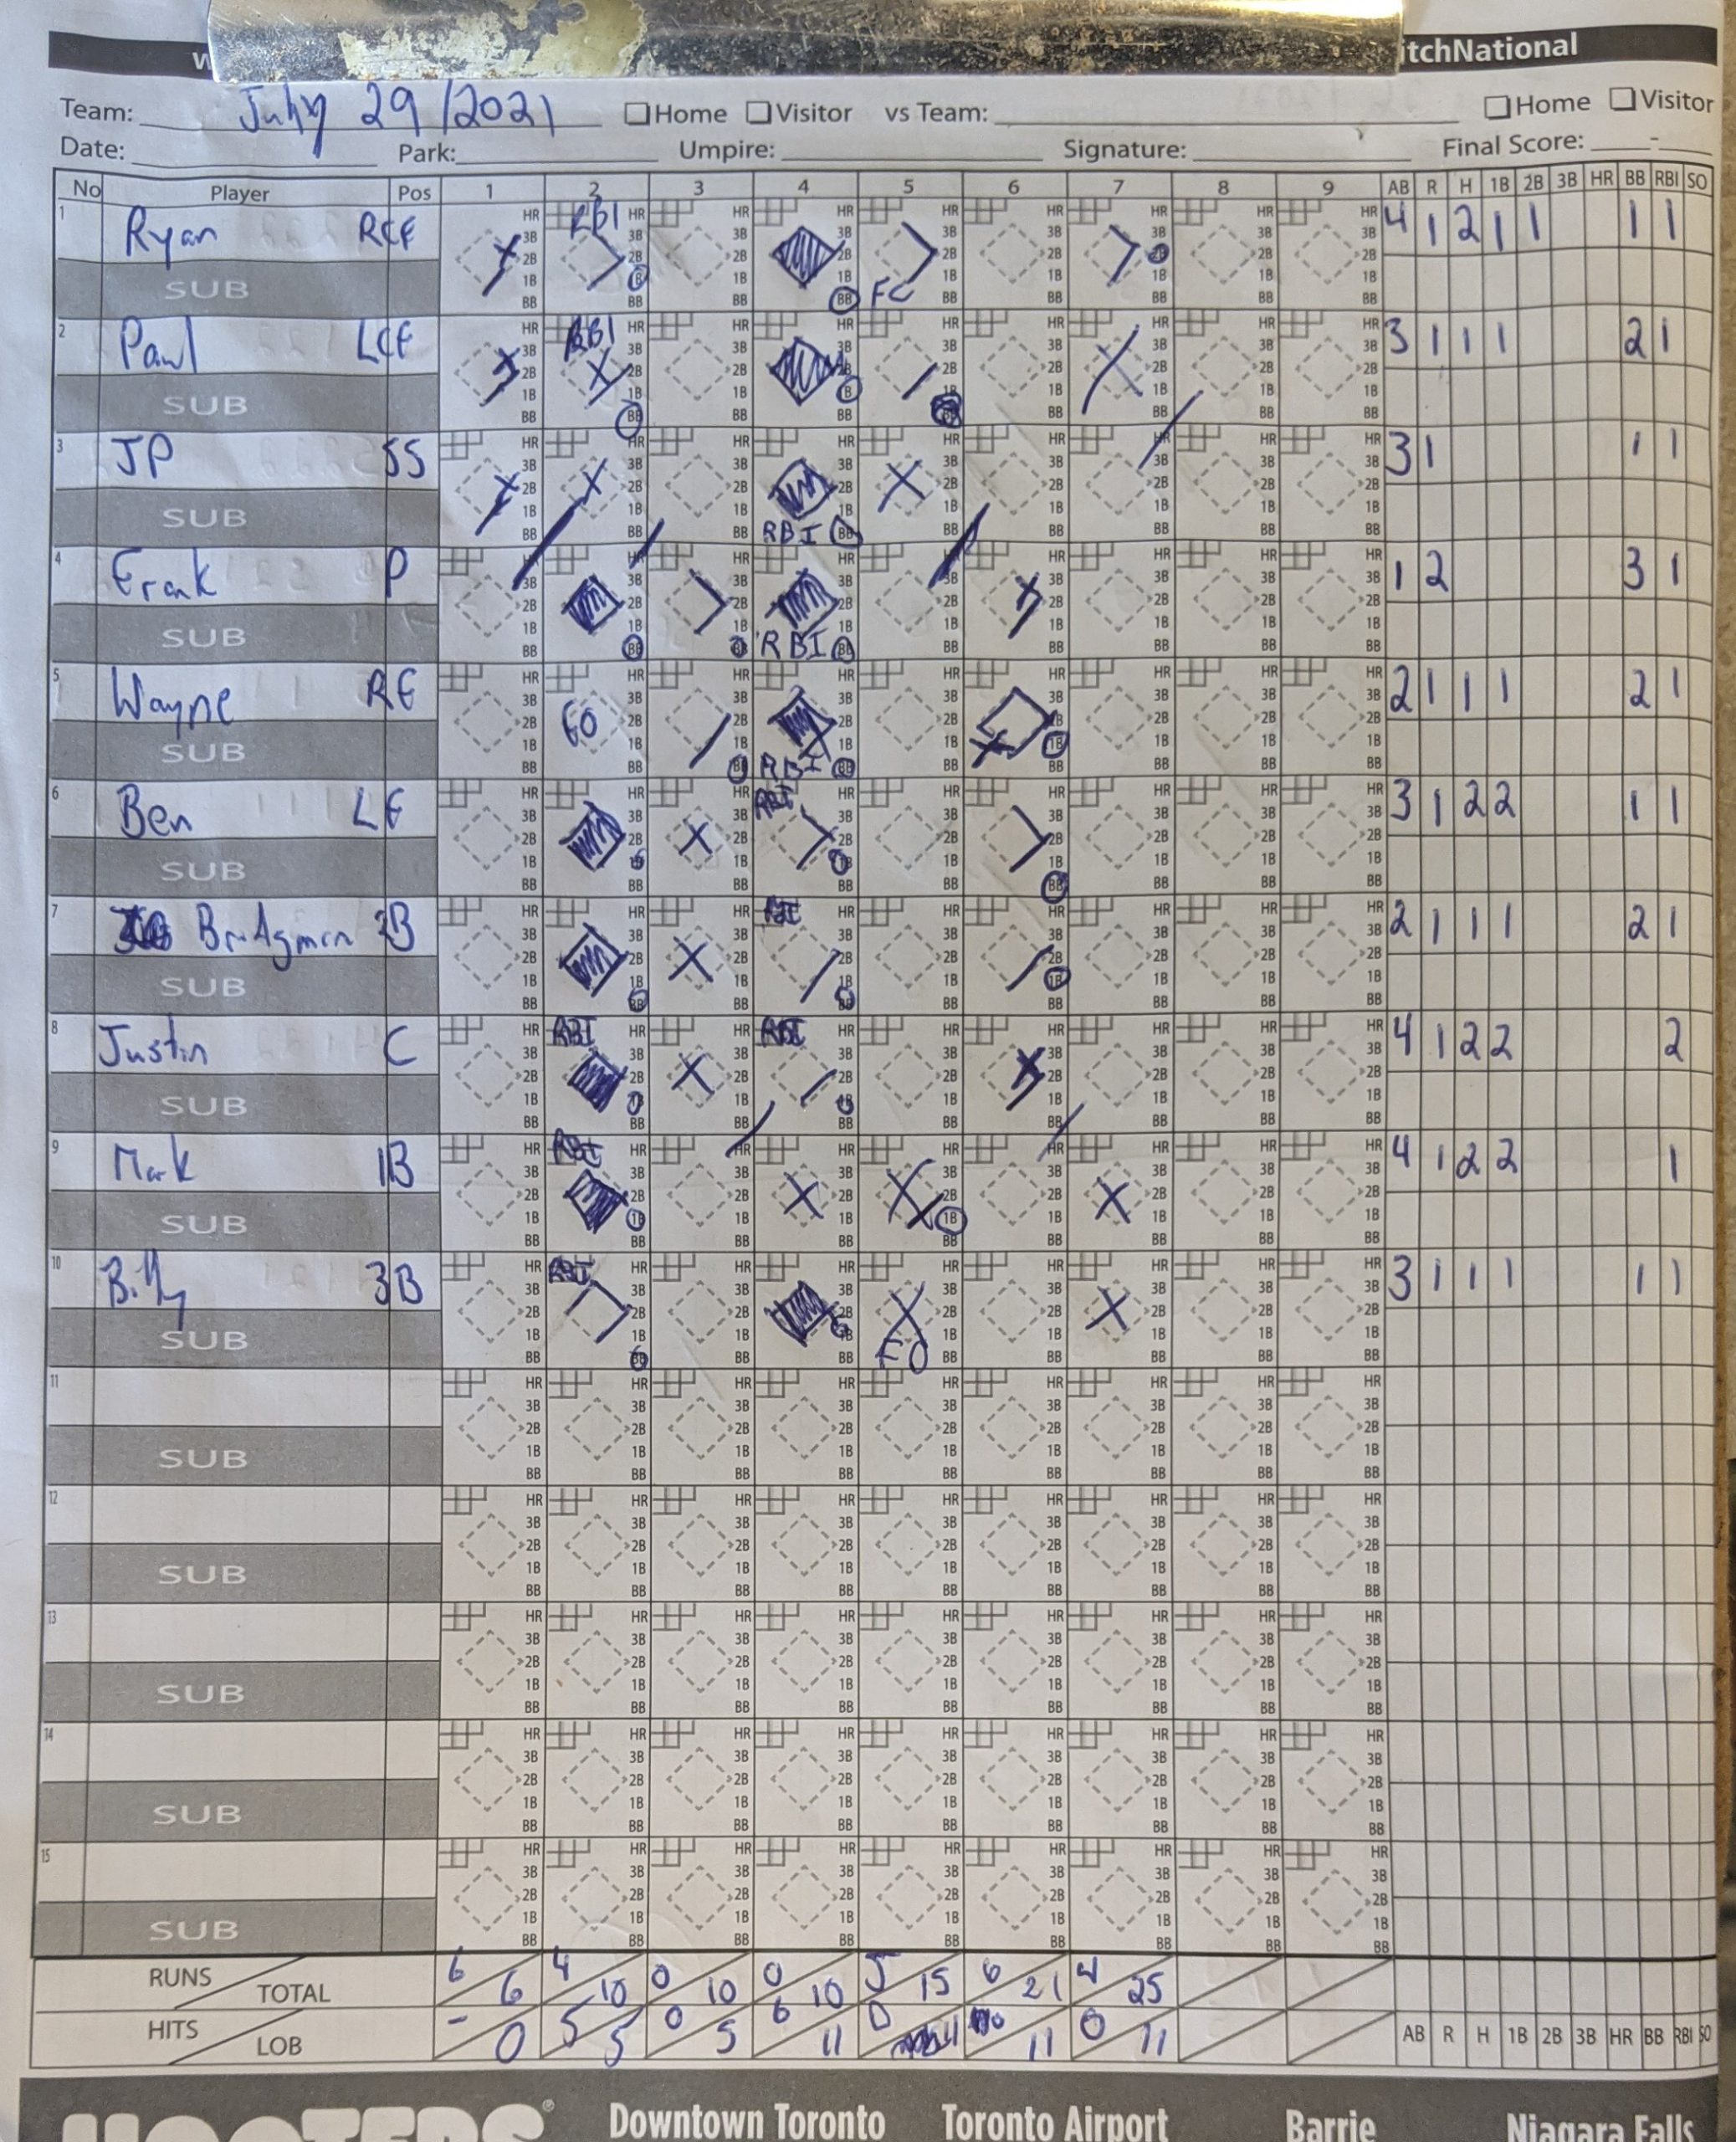 itchNational
Team: July 29/2021 Home Visitor vs Team: Home Visitor
Date: Park: Umpire: Signature: Final Score: -
No Player Pos 1 2 3 4 5 6 7 8 9 AB R H 1B 2B 3B HR BB RBI SO
1 Ryan RCF RBI FC 4 1 2 1 1 1 1
SUB
2 Paul LCF RBI 3 1 1 1 2 1
SUB
3 JP SS RBI 3 1 1 1
SUB
4 Frank P RBI 1 2 3 1
SUB
5 Wayne RF RBI 2 1 1 1 2 1
SUB
6 Ben LF RBI 3 1 2 2 1 1
SUB
7 Bridgman 2B RBI 2 1 1 1 2 1
SUB
8 Justin C RBI RBI 4 1 2 2 2
SUB
9 Mark 1B RBI 4 1 2 2 1
SUB
10 Billy 3B RBI FO 3 1 1 1 1 1
SUB
11
SUB
12
SUB
13
SUB
14
SUB
15
SUB
RUNS TOTAL 6 6 4 10 0 10 0 10 5 15 6 21 4 25
HITS LOB - 0 5 5 0 5 6 11 0 11 0 11
AB R H 1B 2B 3B HR BB RBI SO
HOOTERS® Downtown Toronto Toronto Airport Barrie Niagara Falls